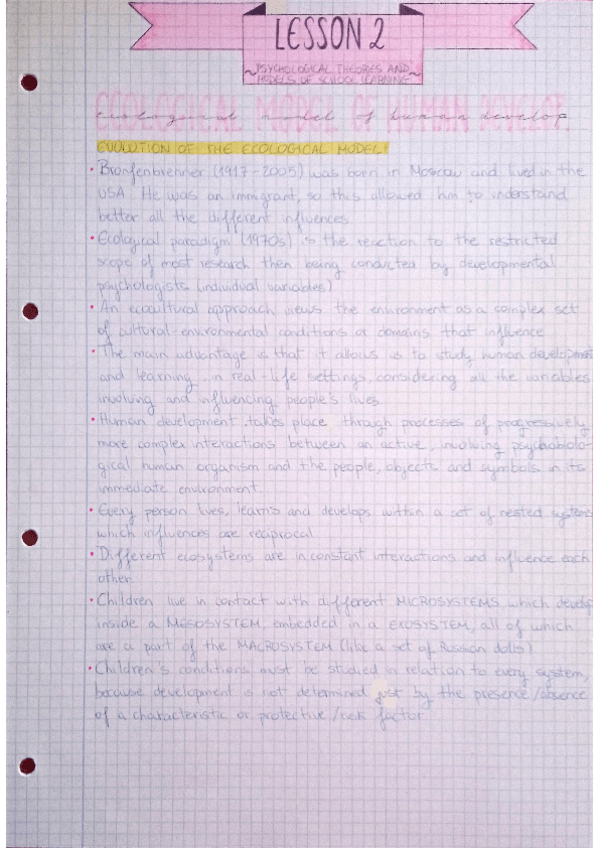 LESSON 2
PSYCHOLOGICAL THEORIES AND
MODELS OF SCHOOL LEARNING
ECOLOGICAL MODEL OF HUMAN DEVELOP
ecological model of human develop
EVOLUTION OF THE ECOLOGICAL MODEL:
• Bronfenbrenner (1917-2005) was born in Moscow and lived in the
USA. He was an immigrant, so this allowed him to understand
better all the different influences.
• Ecological paradigm (1970s) is the reaction to the restricted
scope of most research then being conducted by developmental
psychologists (individual variables)
• An ecocultural approach views the environment as a complex set
of cultural-environmental conditions or domains that influence
• The main advantage is that it allows us to study human development
and learning in real-life settings, considering all the variables
involving and influencing people's lives.
• Human development takes place through processes of progressively
more complex interactions between an active, involving psychobiolo-
gical human organism and the people, objects and symbols in its
immediate environment.
• Every person lives, learns and develops within a set of nested systems
which influences are reciprocal
• Different ecosystems are in constant interactions and influence each
other.
• Children live in contact with different MICROSYSTEMS, which develop
inside a MESOSYSTEM, embedded in a EXOSYSTEM, all of which
are a part of the MACROSYSTEM (like a set of Russian dolls)
• Children's conditions must be studied in relation to every system,
because development is not determined just by the presence/absence
of a characteristic or protective/risk factor.